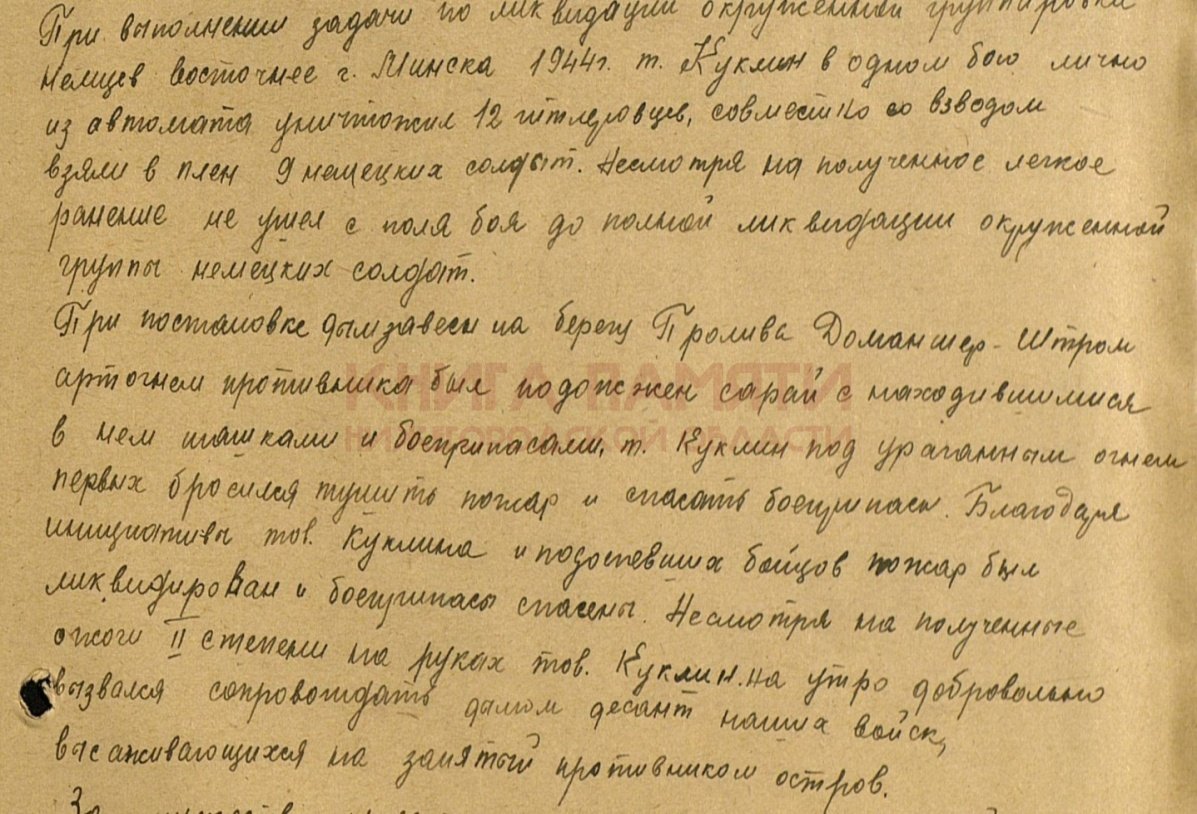 При выполнении задачи по ликвидации окруженной группировки
немцев восточнее г. Минска 1944г. т. Куклин в одном бою лично
из автомата уничтожил 12 гитлеровцев, совместно со взводом
взяли в плен 9 немецких солдат. Несмотря на полученное легкое
ранение не ушел с поля боя до полной ликвидации окруженной
группы немецких солдат.
При постановке дымзавесы на берегу Пролива Доманшер-Штром
артогнем противника был подожжен сарай с находившимися
КНИГА ПАМЯТИ
в нем шашками и боеприпасами, т. Куклин под ураганным огнем
НИЖЕГОРОДСКОЙ ОБЛАСТИ
первых бросился тушить пожар и спасать боеприпасы. Благодаря
инициативы тов. Куклина и подоспевших бойцов пожар был
ликвидирован и боеприпасы спасены. Несмотря на полученные
ожоги II степени на руках тов. Куклин на утро добровольно
вызвался сопровождать дымом десант наших войск,
высаживающихся на занятый противником остров.
За